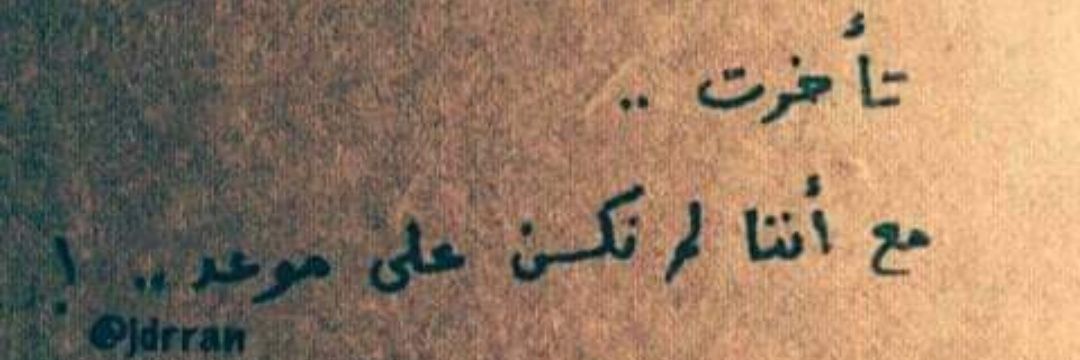 تأخرت ..
مع أننا لم نكن على موعد .. !
@jdrran